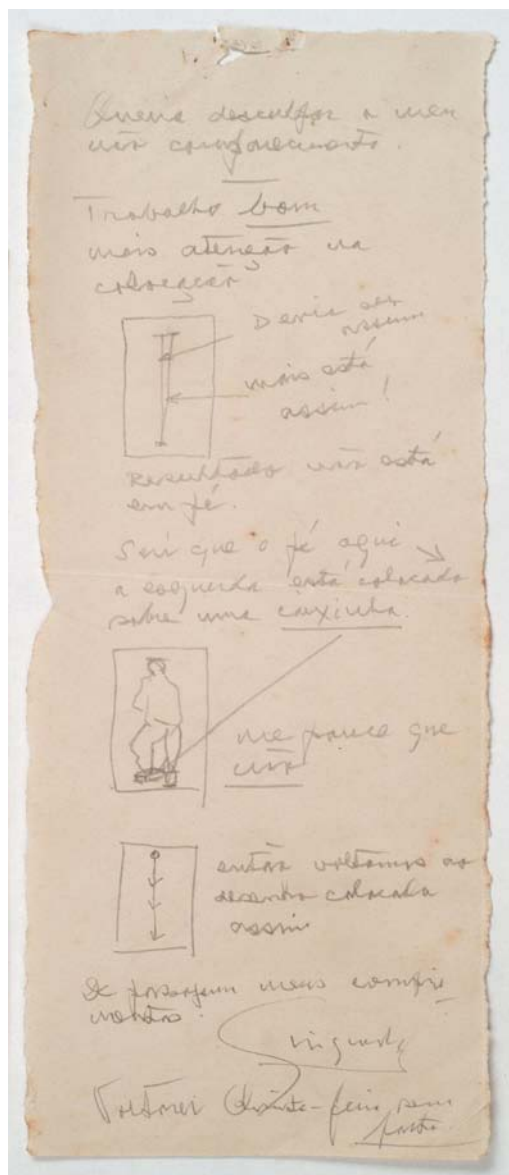 Queira desculpar o meu
não comparecimento.
Trabalho bom
mais atenção na
colocação
Devia ser
assim
mais está
assim!
Resultado não está
em pé.
Sei que o pé aqui
a esquerda está colocado
sobre uma caixinha.
me parece que
não
então voltamos ao
desenho colocado
assim
De passagem meus compri
mentos.
Voltarei Quinta-feira sem
falta.